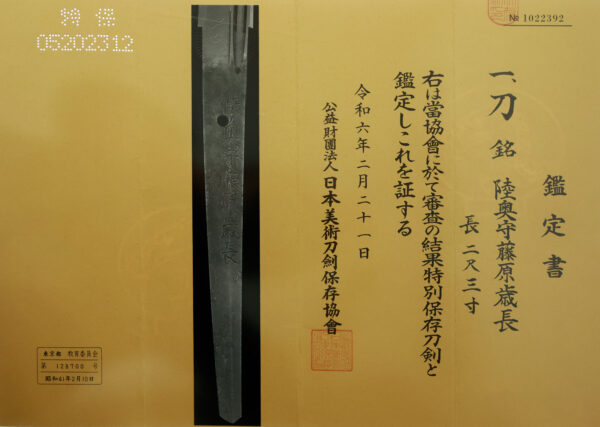 № 1022392
鑑定書
一、刀 銘 陸奥守藤原歳長
長 二尺三寸
右は當協會に於て審査の結果特別保存刀剣と
鑑定しこれを証する
令和六年二月二十一日
公益財團法人 日本美術刀劍保存協會
特保
05202312
東京都 教育委員会
第 128700 号
昭和61年2月10日